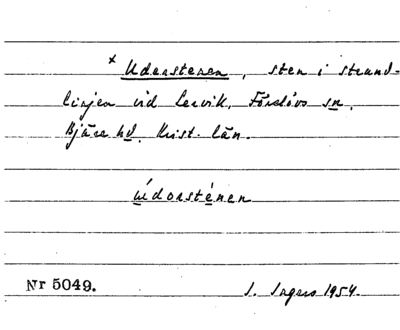 x Udorstenen, sten i strand-
linjen vid Lervik, Förslövs sn.
Bjäre hd. Krist. län.
údorsténen
Nr 5049.
S. Ingers 1954.